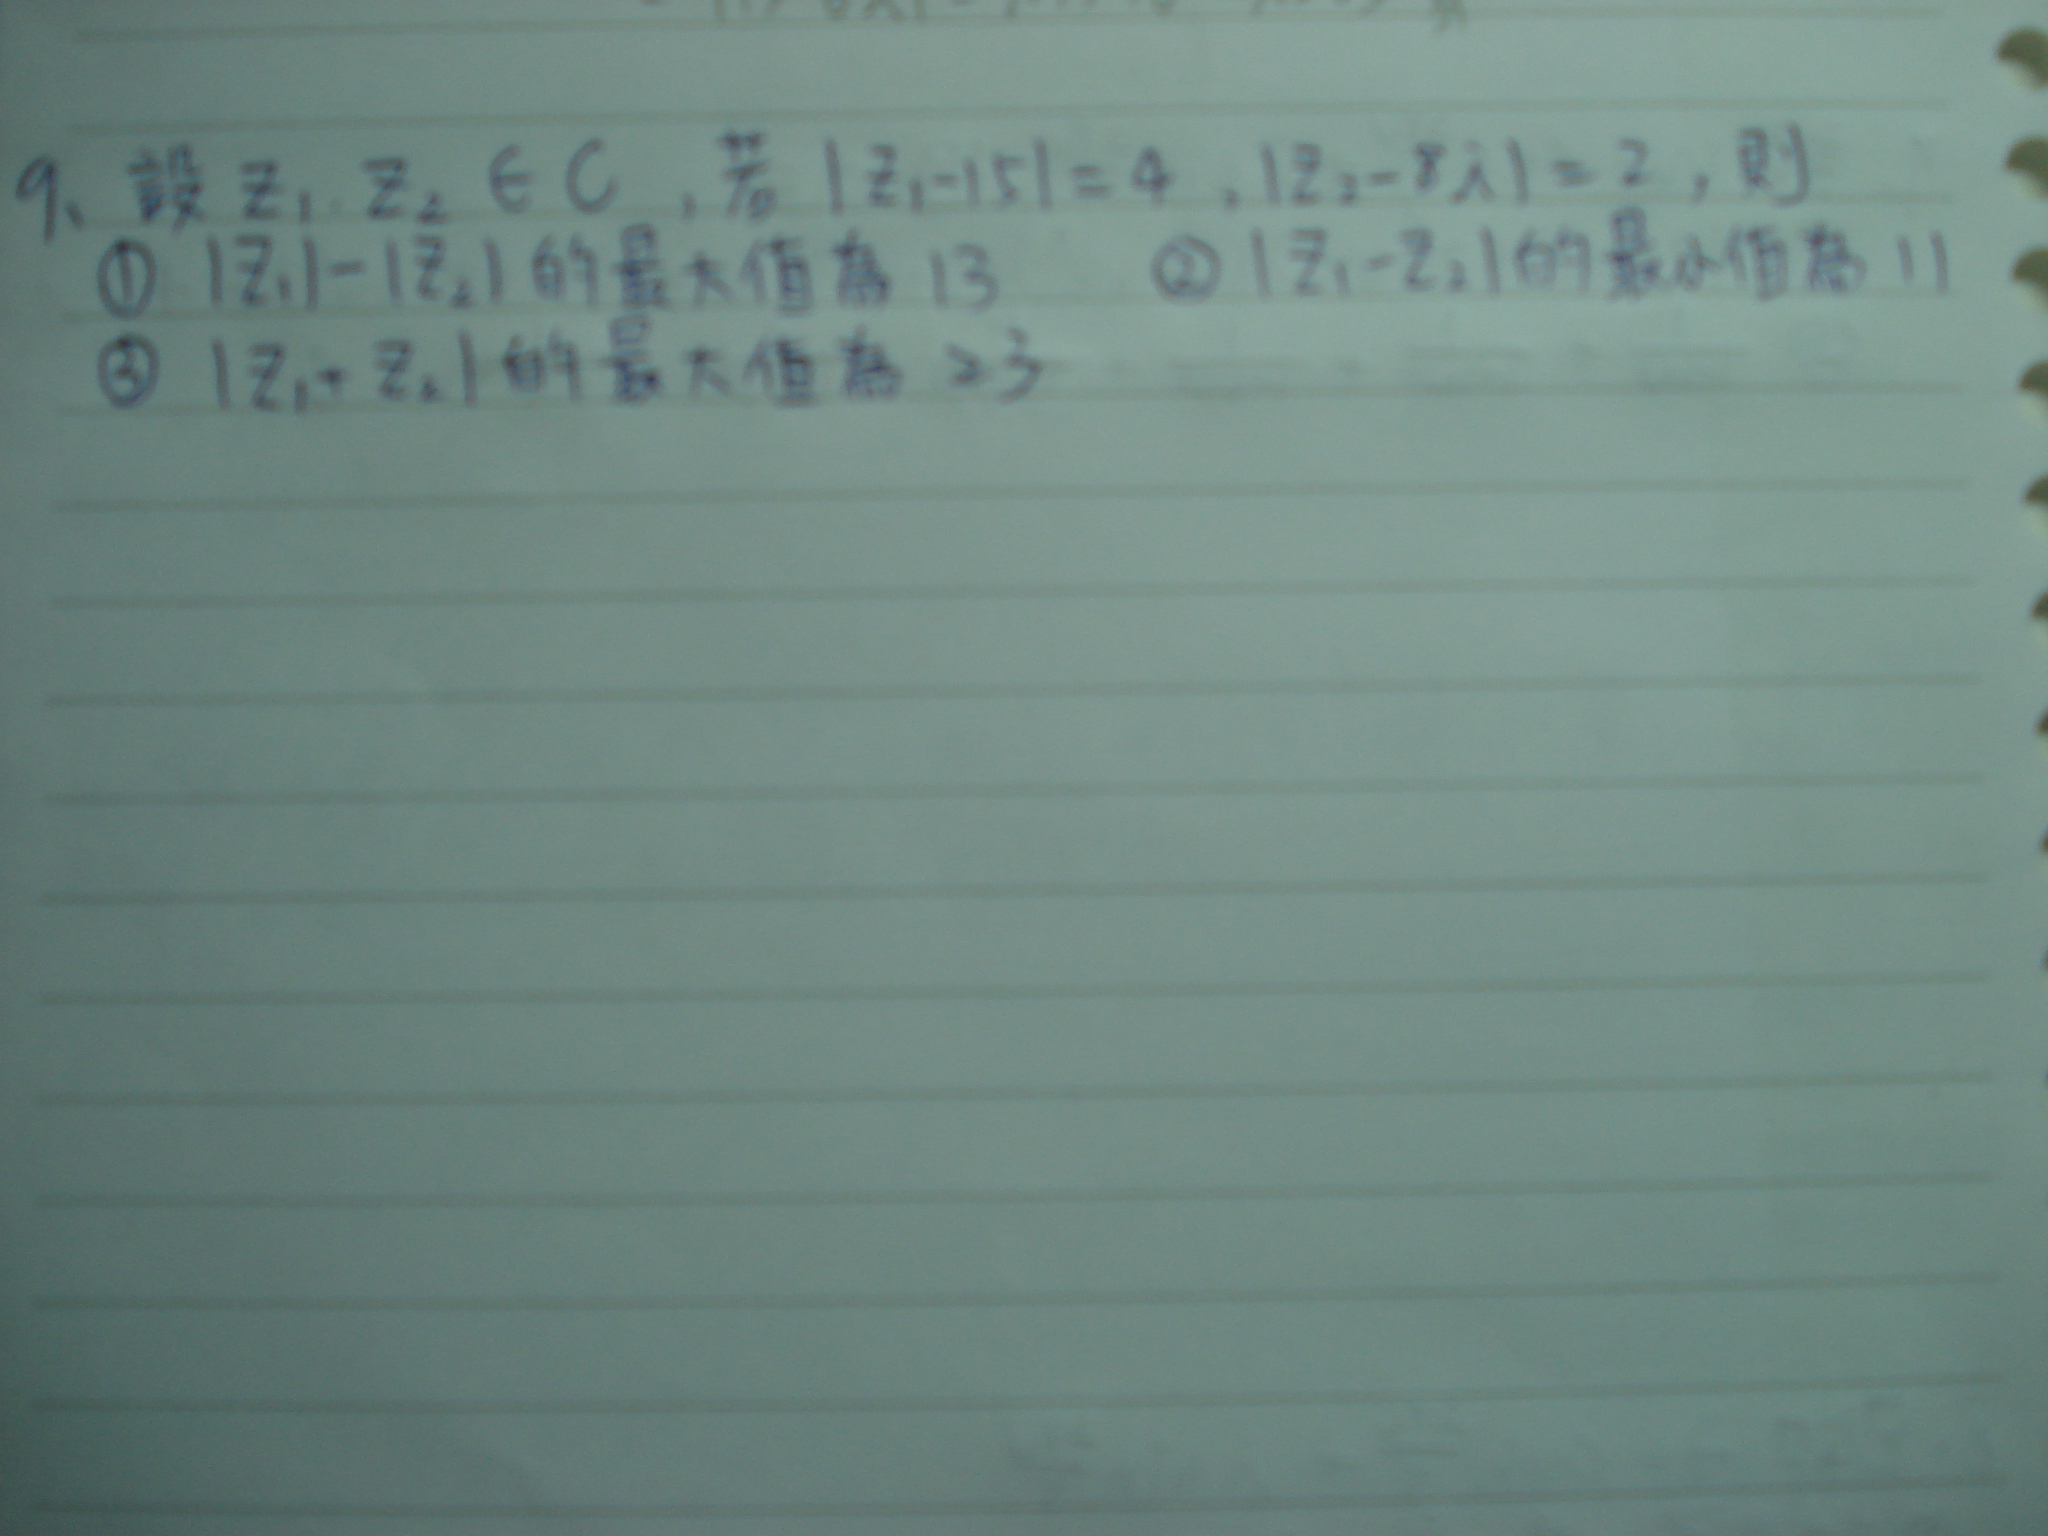 9、設 Z₁、Z₂ ∈ C，若 |Z₁-15| = 4，|Z₂-8i| = 2，則
① |Z₁|-|Z₂| 的最大值為 13 ② |Z₁-Z₂| 的最小值為 11
③ |Z₁+Z₂| 的最大值為 23